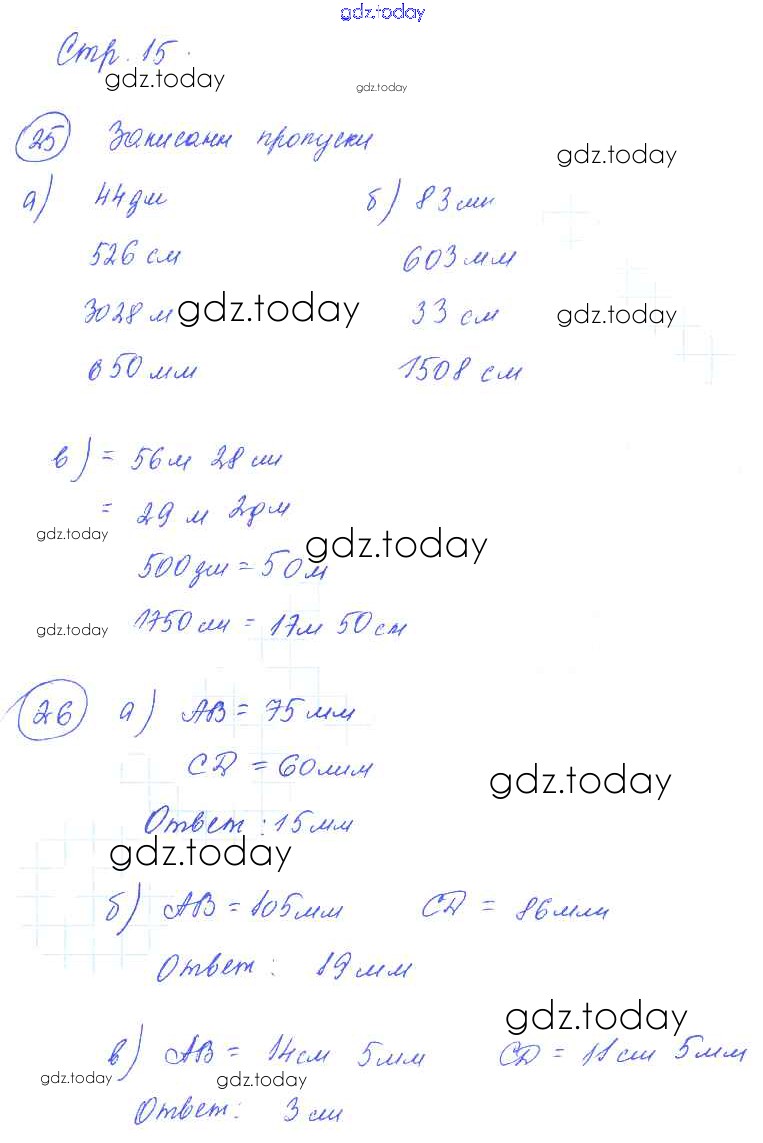 gdz.today
Стр. 15.
gdz.today gdz.today
25 Записали пропуски
gdz.today
а) 44дм б) 83мм
526 см 603 мм
3028 м gdz.today 33 см gdz.today
650 мм 1508 см
в) = 56м 28 см
= 29 м 2дм
gdz.today gdz.today
500дм = 50м
gdz.today 1750см = 17м 50см
26 а) АВ = 75 мм
CD = 60мм
gdz.today
Ответ: 15мм
gdz.today
б) АВ = 105мм CD = 86мм
Ответ: 19 мм
gdz.today
в) АВ = 14см 5мм CD = 11см 5мм
gdz.today gdz.today
Ответ: 3 см